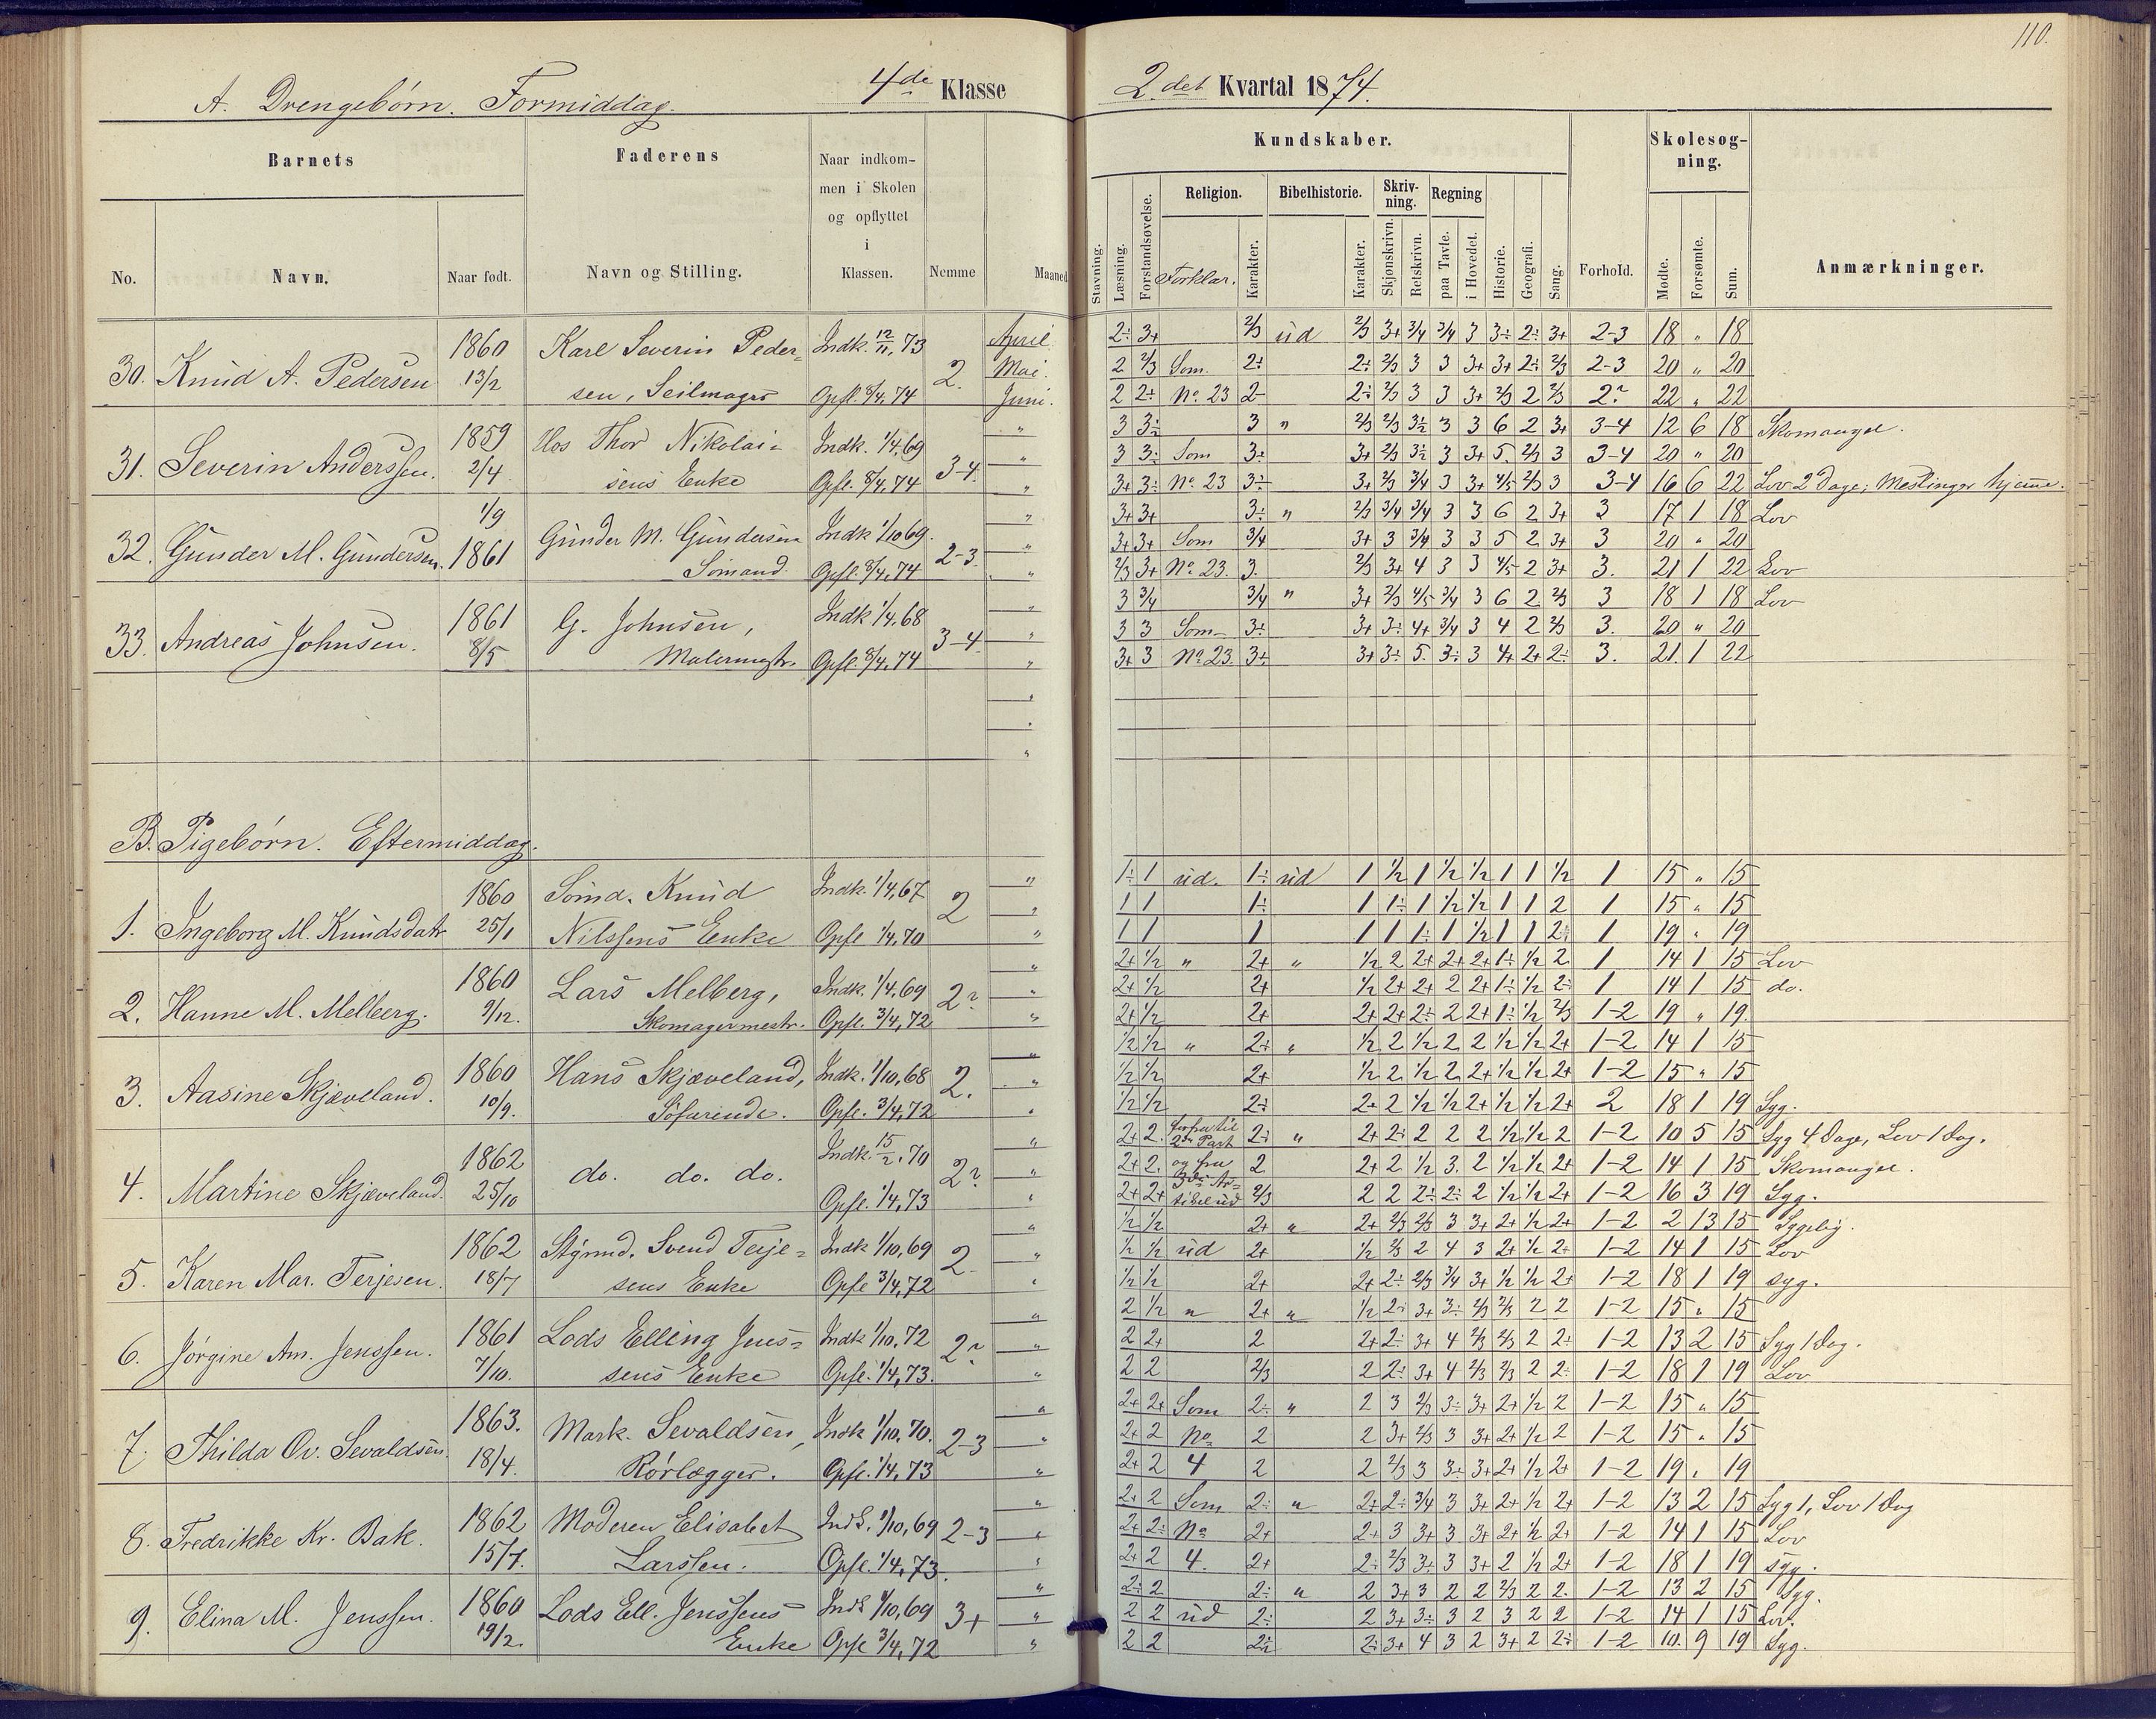 110.
A. Drengebørn. Formiddag.
4de Klasse
2det Kvartal 1874.
Barnets
Faderens
Naar indkommen i Skolen og opflyttet i Klassen.
Nemme
Maaned
Kundskaber.
Skolesøgning.
No.
Navn.
Naar født.
Navn og Stilling.
Stavning.
Læsning.
Forstandsøvelse.
Religion.
Forklar.
Karakter.
Bibelhistorie.
Karakter.
Skrivning.
Skjønskrivn.
Retskrivn.
Regning
paa Tavle.
i Hovedet.
Historie.
Geografi.
Sang.
Forhold.
Mødte.
Forsømte.
Sum.
Anmærkninger.
30. Knud A. Pedersen 1860 13/2 Karl Severin Pedersen, Seilmager Indk. 12/11, 73 Opfl. 8/4, 74 2.
April 2÷ 3+ 2/3 ud 2/3 3+ 3/4 3/4 3 3÷ 2÷ 3+ 2-3 18 " 18
Mai 2 2/3 Som 2÷ 2÷ 2/3 3 3 3+ 3+ 2÷ 2/3 2-3 20 " 20
Juni. 2 2÷ No. 23 2÷ 2÷ 2/3 3 3 3+ 2/3 2 2/3 2? 22 " 22
31. Severin Anderssen. 1859 2/4 Hos Thor Nikolaisens Enke Indk. 1/4, 69 Opfl. 8/4, 74 3-4.
" 3 3÷ 3 " 2/3 2/3 3÷ 3 3 6 2 3+ 3-4 12 6 18 Skomangel.
" 3 3÷ Som 3÷ 3+ 2/3 3÷ 3 3+ 5. 2/3 3 3-4 20 " 20
" 3+ 3÷ No. 23 3÷ 3+ 2/3 3/4 3 3+ 4/5 2/3 3 3-4 16 6 22 Lov 2 Dage; Meslinger hjeme.
32. Gunder M. Gundersen. 1/9 1861 Gunder M. Gundersen Sømand. Indk 1/10 69. Opfl. 8/4, 74 2-3.
" 3+ 3+ 3÷ " 2/3 3/4 3/4 3 3 6 2 3+ 3 17 1 18 Lov
" 3+ 3+ Som 3/4 3+ 3 3/4 3 3 5 2 3+ 3 20 " 20
" 2/3 3+ No. 23. 3. 2/3 3+ 4 3 3 4/5 2 3+ 3. 21 1 22 Lov
33. Andreas Johnsen. 1861 8/5 G. Johnsen, Malermestr. Indk 1/4, 68 Opfl. 8/4, 74 3-4.
" 3 3/4 3/4 " 3+ 2/3 4/5 3/4 3 6 2 2/3 3 18 1 18 Lov
" 3 3 Som 3÷ 3+ 3÷ 4+ 3/4 3 4 2 2/3 3. 20 " 20
" 3+ 3 No. 23. 3÷ 3+ 3÷ 5. 3÷ 3 4+ 2+ 2÷ 3. 21. 1 22
"
"
"
B. Pigebørn. Eftermiddag.
1. Ingeborg M. Knudsdatr 1860 25/1 Sømd. Knud Nilssens Enke Indk. 1/4, 67 Opfl 1/4, 70 2
" 1÷ 1 ud. 1÷ ud 1 1/2 1 1/2 1/2 1 1 1/2 1 15 " 15
" 1 1 1÷ 1 1÷ 1 1/2 1/2 1 1 2 1 15 " 15
" 1 1 1 1 1 1÷ 1 1/2 1 1 2÷ 1 19 " 19
2. Hanne M. Melberg. 1860 9/12. Lars Melberg, Skomagermestr. Indk. 1/4, 69 Opfl. 3/4, 72 2?
" 2+ 1/2 " 2+ " 1/2 2 2+ 2+ 2+ 1÷ 1/2 2 1 14 1 15 Lov
" 2+ 1/2 2+ 1/2 2+ 2+ 2 2+ 1÷ 1/2 2÷ 1 14 1 15 do.
" 2+ 1/2 2+ 2+ 2+ 2÷ 2 2+ 1÷ 1/2 2/3 1-2 19 " 19.
3. Aasine Skjæveland. 1860 10/9. Hans Skjæveland, Søfarende. Indk. 1/10, 68 Opfl. 3/4, 72 2.
" 1/2 1/2 " 2+ " 1/2 2 1/2 2 2 1/2 1/2 2+ 1-2 14 1 15
" 1/2 1/2 2+ 1/2 2 1/2 2 2+ 1/2 1/2 2+ 1-2 15 " 15
" 1/2 1/2 2÷ 2+ 2 1/2 1/2 2+ 1/2 1/2 2+ 2 18 1 19 Syg.
4. Martine Skjæveland. 1862 25/10 do. do. do. Indk. 15/2, 70 Opfl. 1/4, 73 2?
" 2+ 2. forfra til 2den Part 2÷ " 2+ 2÷ 2 2 2 1/2 1/2 2 1-2 10 5 15 Syg 4 Dage, Lov 1 Dag.
" 2+ 2. og fra 2 2+ 2 1/2 3. 2 1/2 1/2 2+ 1-2 14 1 15 Skomangel.
" 2+ 2+ 3die Artikel ud 2/3 2 2 2÷ 2÷ 2 1/2 1/2 2+ 1-2 16 3 19 Syg.
5. Karen Mar. Terjesen. 1862 18/7 Stýrmd. Svend Terjesens Enke Indk 1/10, 69 Opfl 3/4, 72 2
" 1/2 1/2 2+ " 2+ 2/3 2/3 3 3+ 2+ 1/2 2+ 1-2 2 13 15 Sygelig.
" 1/2 1/2 ud 2+ 1/2 2/3 2 4 3 2+ 1/2 2÷ 1-2 14 1 15 Lov
" 1/2 1/2 2+ 2+ 2÷ 2/3 3/4 3+ 1/2 1/2 2+ 1-2 18 1 19 syg.
6. Jørgine Am. Jenssen. 1861 7/10. Lods Elling Jenssens Enke Indk 1/10, 72 Opfl. 1/4, 73. 2?
" 2 1/2 " 2+ " 1/2 2÷ 3+ 3÷ 2/3 2/3 2 2 1-2 15 " 15
" 2 2+ 2 2+ 2÷ 3+ 4 2/3 2/3 2 2÷ 1-2 13 2 15 Syg 1 Dag.
" 2 2 2/3 2 2÷ 3+ 4 2/3 2/3 2 2÷ 1-2 18 1 19 Lov
7. Thilda Ov. Sevaldsen. 1863. 18/4. Mark. Sevaldsen, Rørlægger. Indk 1/10, 70. Opfl. 1/4, 73 2-3
" 2+ 2+ Som 2÷ " 2 3 2/3 3÷ 3+ 2+ 1/2 2 1-2 15 " 15
" 2+ 2 No. 2 2 3+ 2/3 3 3+ 2+ 1/2 2 1-2 15 " 15
" 2+ 2 4 2 2 2/3 3 3÷ 3+ 2+ 1/2 2+ 1-2 19 " 19
8. Fredrikke Kr. Bak. 1862 15/7. Moderen Elisabet Larssen. Indk. 1/10, 69 Opfl. 1/4, 73. 2-3
" 2+ 2 Som 2÷ " 2+ 2÷ 3/4 3 3+ 2+ 1/2 2+ 1-2 13 2 15 Syg 1, Lov 1 Dag
" 2+ 2÷ No 2+ 2+ 3 3+ 3 3+ 2+ 1/2 2+ 1-2 14 1 15 Lov
" 2+ 2 4. 2+ 2÷ 2/3 3÷ 3 3+ 2 1/2 2+ 1-2 18 1 19 syg.
9. Elina M. Jenssen. 1860 19/2. Lods Ell. Jenssens Enke Indk 1/10, 69 Opfl 3/4, 72 3+
" 2÷ 2 2÷ " 2 3+ 3 2 2 2/3 2 2. 1-2 13 2 15 Syg.
" 2 2 ud 2÷ 2 3+ 3÷ 3 2 3 2 2 1-2 14 1 15 Lov.
" 2 2 2÷ 2÷ 3+ 4 3 2 3+ 2 2÷ 1-2 10. 9 19 Syg.